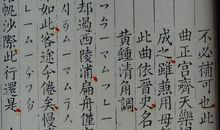 不必補可也此
曲正宮齊天樂
成之雖兼用母
此曲依晉史名
黃鍾清角調
却過西陵浦扁舟僅
如此客途今倦矣漫
帆沙際此行還是